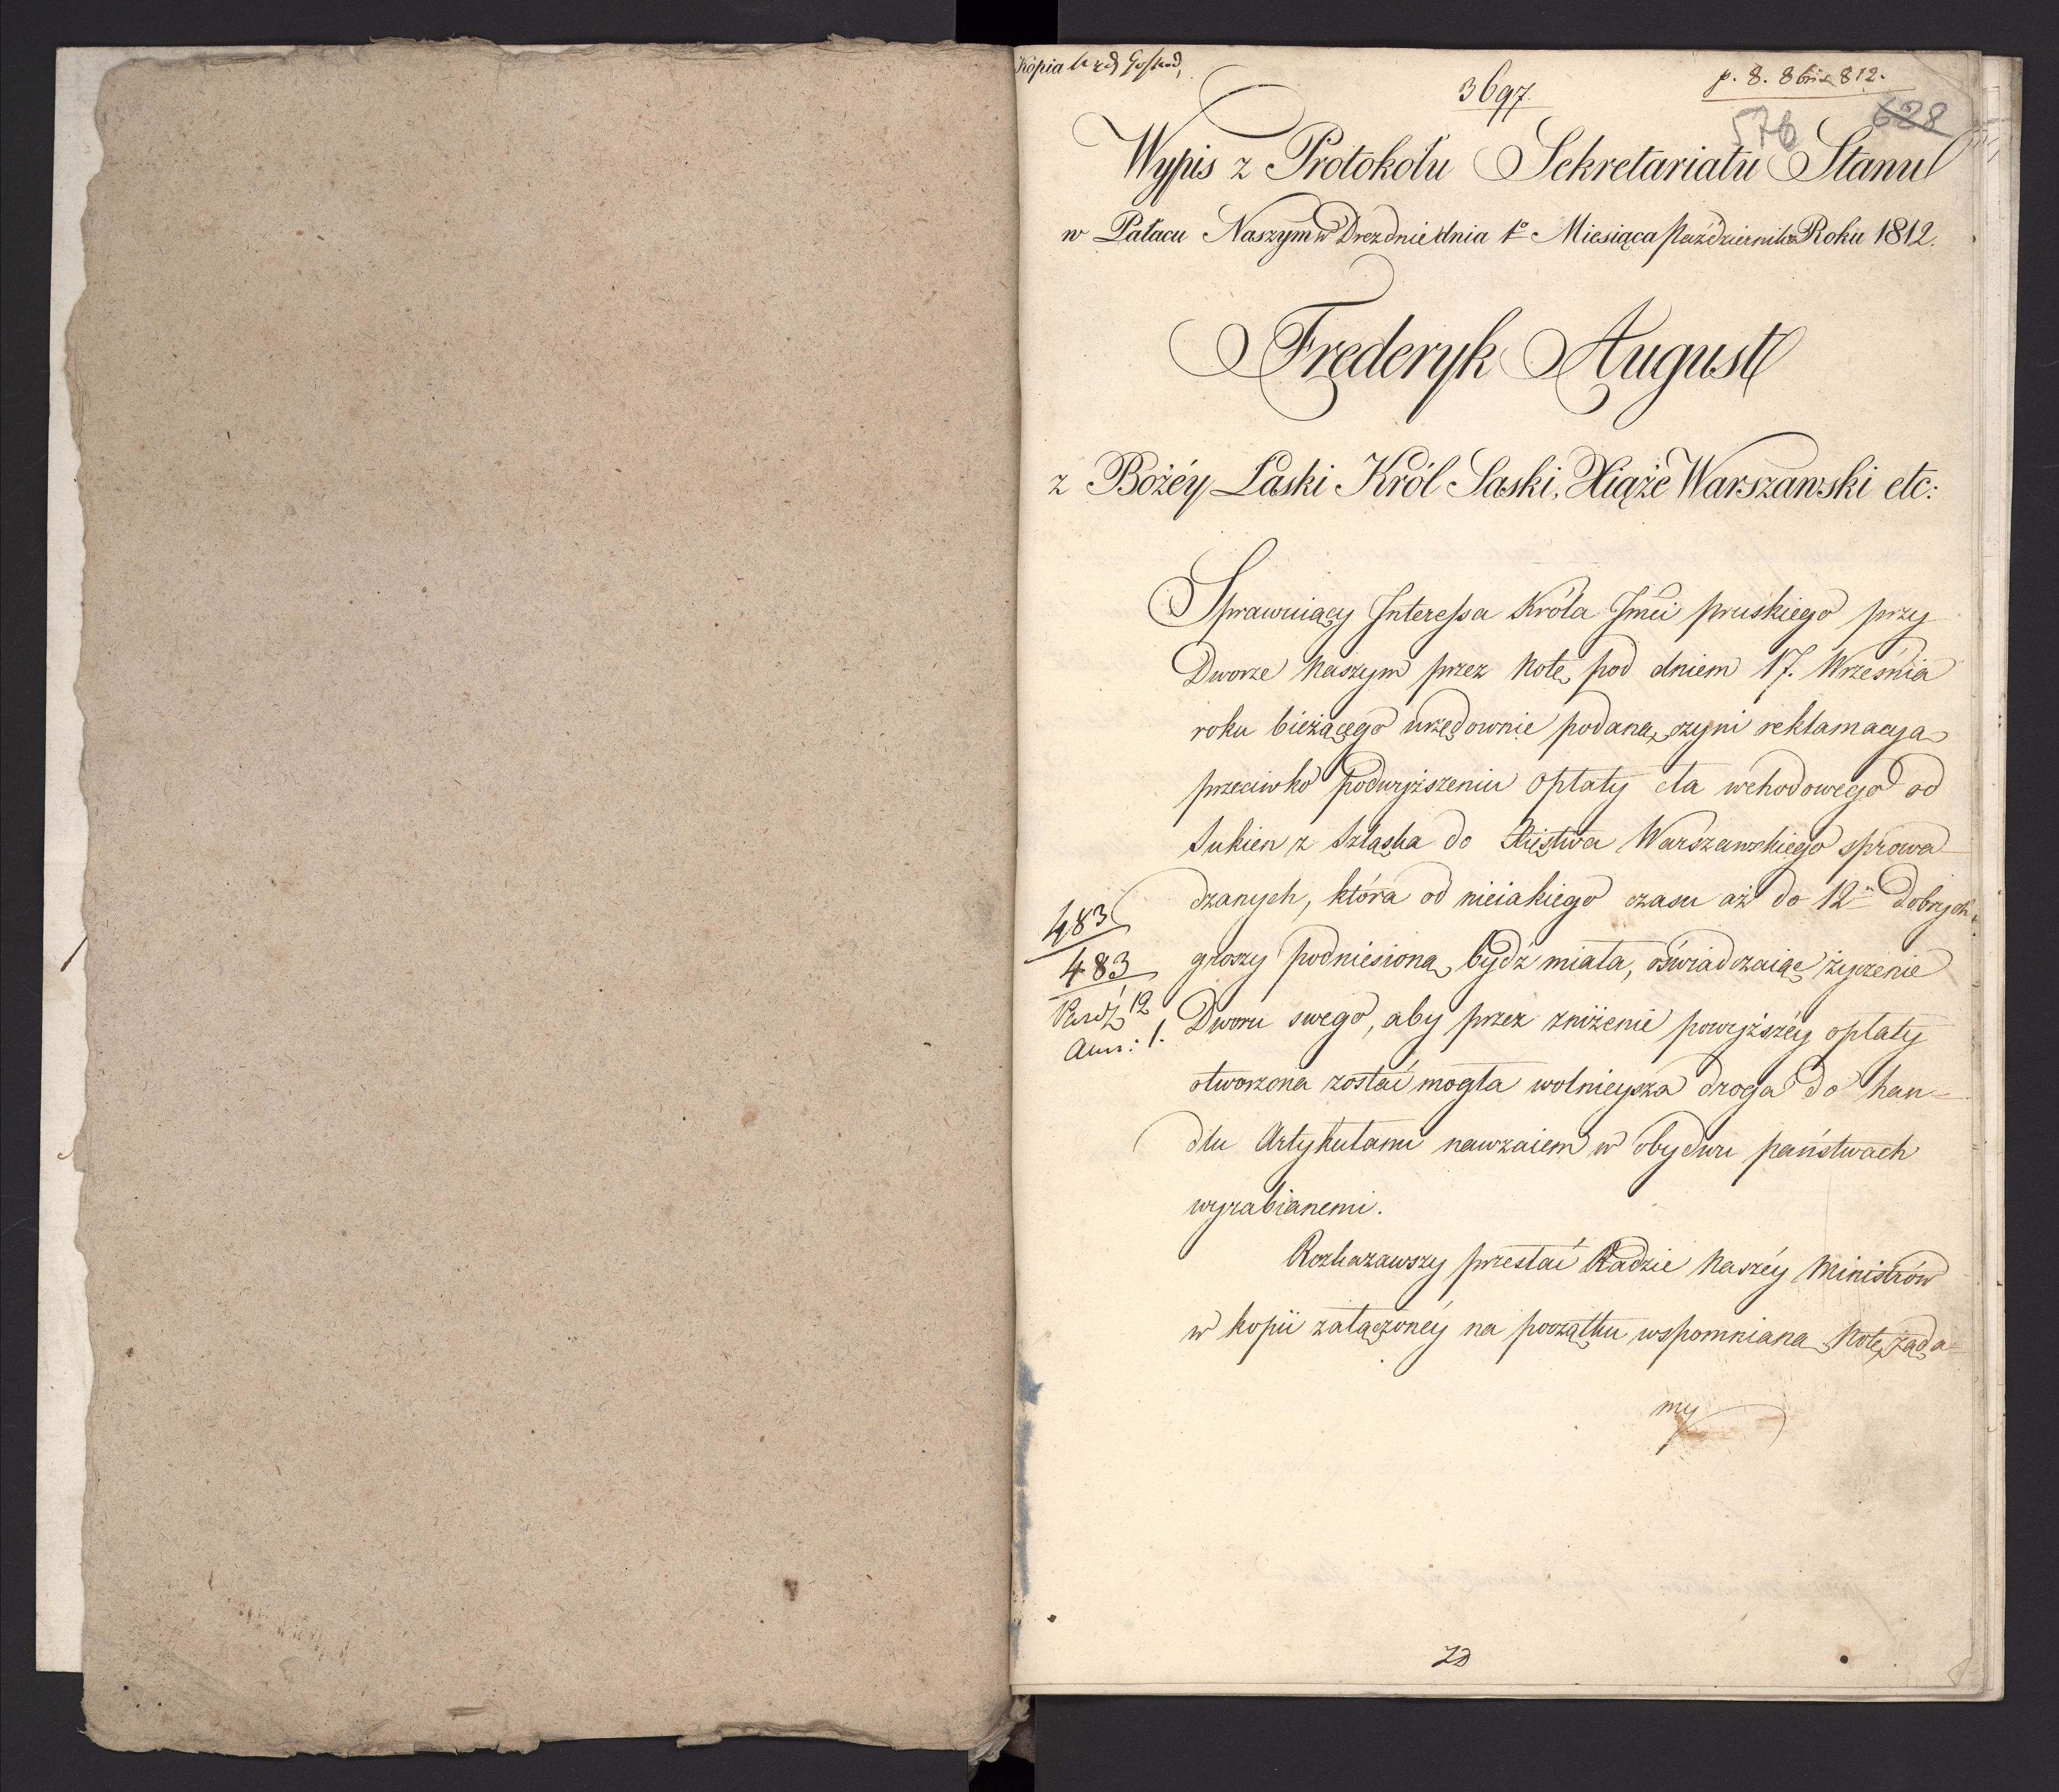 Kopia
3697.
p. 8. 8bris 812.
576
628
Wypis z Protokołu Sekretariatu Stanu
w Pałacu Naszym w Dreznie dnia 1o Miesiąca Października Roku 1812.
Frederyk August
z Bożéy Łaski Król Saski, Xiąże Warszawski etc:
Sprawuiący Interessa Króla Jmci pruskiego przy
Dworze Naszym przez Notę pod dniem 17. Września
roku bieżącego urzędownie podaną, czyni reklamacyą
przeciwko podwyższeniu opłaty cła wchodowego od
sukien z Szląska do Xięstwa Warszawskiego sprowa
dzanych, która od nieiakiego czasu aż do 12u dobrych
groszy podniesioną bydź miała, oświadczaiąc życzenie
Dworu swego, aby przez zniżenie powyższéy opłaty
otworzona zostać mogła wolnieysza droga do han=
dlu Artykułami nawzaiem w obydwu państwach
wyrabianemi.
483
483
12
1.
Rozkazawszy przesłać Radzie Naszéy Ministrów
w kopii załączonéy na początku wspomnianą Notę, żąda=
my